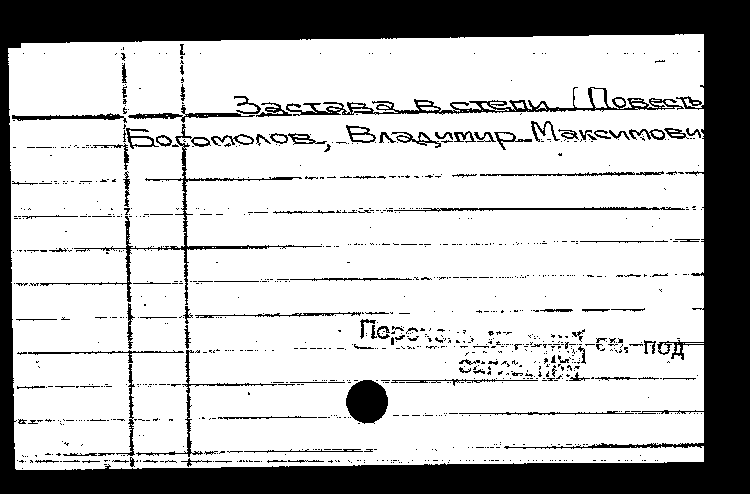 Застава в степи (Повесть)
Богомолов, Владимир Максимович
Перечень см. под